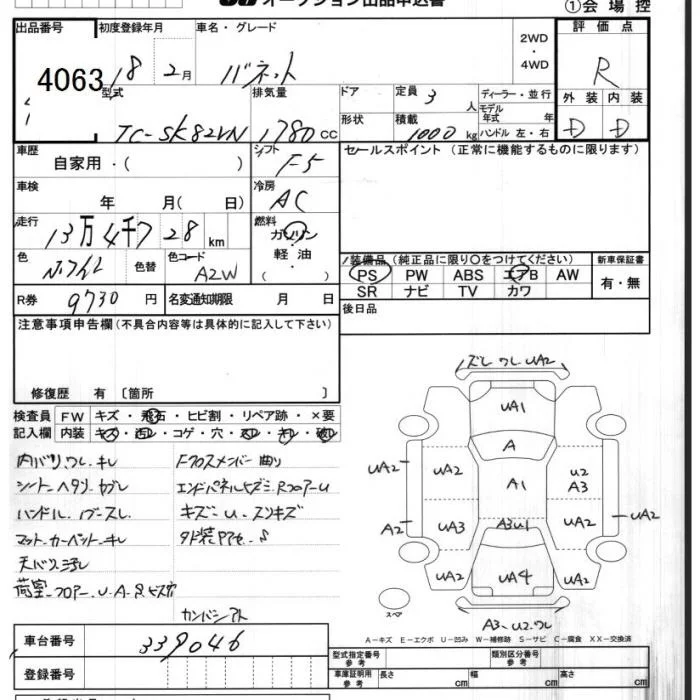 オークション出品申込書
①会場控
出品番号 初度登録年月 車名・グレード 2WD・4WD 評価点
4063 18 2月 バネット R
型式 排気量 ドア 定員 3人 ディーラー・並行
外装 内装
形状 積載 1000kg モデル年式 年
ハンドル 左・右
TC-SK82VN 1780cc D D
車歴 シフト セールスポイント (正常に機能するものに限ります)
自家用・( ) F5
車検 冷房
年 月( 日) AC
走行 燃料
13万4千728km ガソリン
軽・油
( )
色 色替 色コード A2W
装備品 (純正品に限り○をつけてください) 新車保証書
PS PW ABS エアB AW 有・無
SR ナビ TV カワ
R券 9730円 名変通知期限 月 日
後日品
注意事項申告欄 (不具合内容等は具体的に記入して下さい)
修復歴 有 〔箇所 〕
検査員 FW キズ・飛石・ヒビ割・リペア跡・×要
記入欄 内装 キズ・汚レ・コゲ・穴
内バリ.ワレ.キレ Fクロスメンバー曲り
シート.ヘタリ.ヤブレ エンドパネルヒズミ.Rフロアー U
キズ.U.スンキズ
マット.カーペット.キレ
天バリ.ヨゴレ
荷室.フロアー.U.A.S
ズレ ワレ UA2
UA1
A
UA2 UA2 A1 U2 A3
A2 UA3 A3U1 UA2 UA2
UA2 UA4 UA2
スペア
A3.U2.ワレ
A-キズ E-エクボ U-凹み W-補修跡 S-サビ C-腐食 XX-交換済
車台番号 339046
型式指定番号 参考 類別区分番号 参考
登録番号
車庫証明用 参考 長さ cm 幅 cm 高さ cm